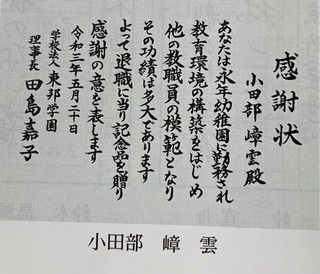 感謝状
小田部嶂雲殿
あなたは永年幼稚園に勤務され
教育環境の構築をはじめ
他の教職員の模範となり
その功績は多大であります
よって退職に当り記念品を贈り
感謝の意を表します
令和三年五月二十日
学校法人東邦学園
理事長田島嘉子
小田部 嶂 雲